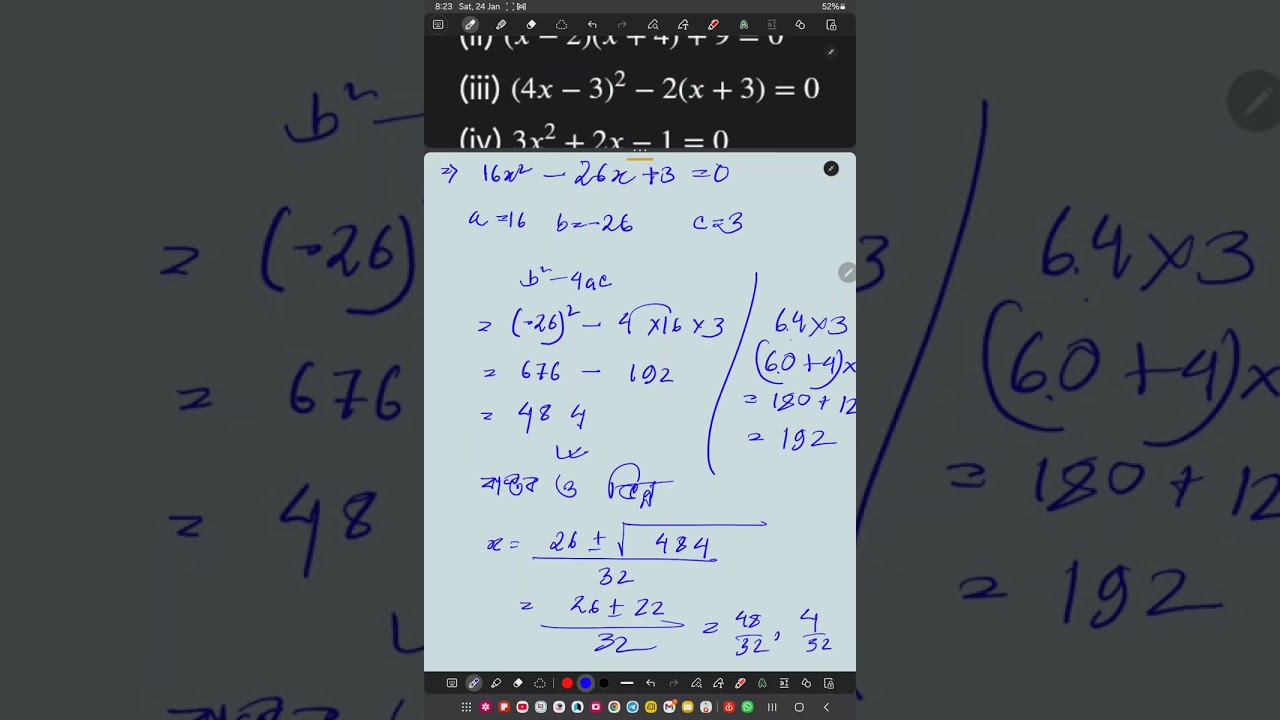 8:23 Sat, 24 Jan
52%
(ii) (x − 2)(x + 4) + 9 = 0
(iii) (4x − 3)² − 2(x + 3) = 0
(iv) 3x² + 2x − 1 = 0
⇒ 16x² − 26x + 3 = 0
a = 16 b = -26 c = 3
b² − 4ac
= (-26)² − 4 × 16 × 3
= 676 − 192
= 484
64 × 3
(60 + 4) ×
= 180 + 12
= 192
বাস্তব ও
x = 26 ± √484 / 32
= 26 ± 22 / 32 = 48/32, 4/32